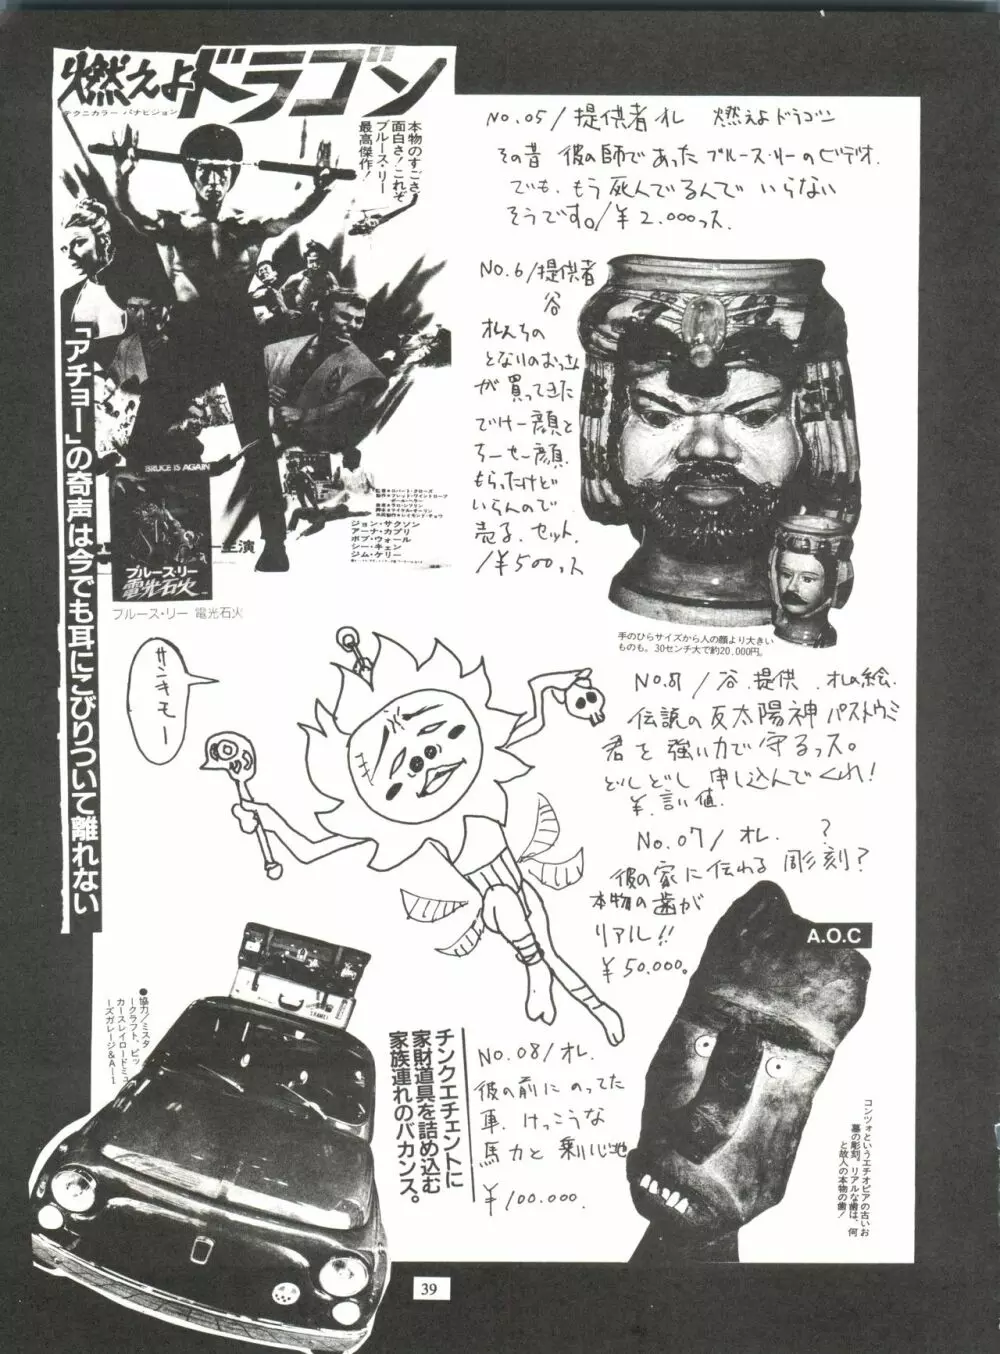 燃えよドラゴン
テクニカラー パナビジョン
本物のすごさ
面白さ!これぞ
ブルース・リー
最高傑作!
「アチョー」の奇声は今でも耳にこびりついて離れない
BRUCE IS AGAIN
ブルース・リー
電光石火
主演
監督●ロバート・クローズ
ジョン・サクソン
アーナ・カプリ
ボブ・ウォール
シー・キェン
ジム・ケリー
ブルース・リー 電光石火
No.05/提供者オレ 燃えよドラゴン
その昔 彼の師であったブルース・リーのビデオ.
でも、もう死んでるんで いらない
そうです。/¥2.000っス.
No.6/提供者
谷
オレんちの
となりのおっさん
が買ってきた
でけー顔と
ちーせー顔.
もらったけど
いらんので
売る. セット.
/¥500っス
手のひらサイズから人の顔より大きい
ものも。30センチ大で約20,000円。
サンキモー
No.81/谷.提供.オレの絵.
伝説の反太陽神 パストウミ
君を強い力で守るっス。
どしどし 申し込んでくれ!
¥.言い値.
No.07/オレ. ?
彼の家に伝わる 彫刻?
本物の歯が
リアル!!
¥50.000。
A.O.C
コンツォというエチオピアの古いお
墓の彫刻。リアルな歯は、何
と故人の本物の歯!
●協力/ミスタ
ークラフト、ビッ
カースレイロードミュ
ーズガレージ&A—1
チンクエチェントに
家財道具を詰め込む
家族連れのバカンス。
No.08/オレ.
彼の前にのってた
車. けっこうな
馬力と 乗り心地
¥100.000.
39